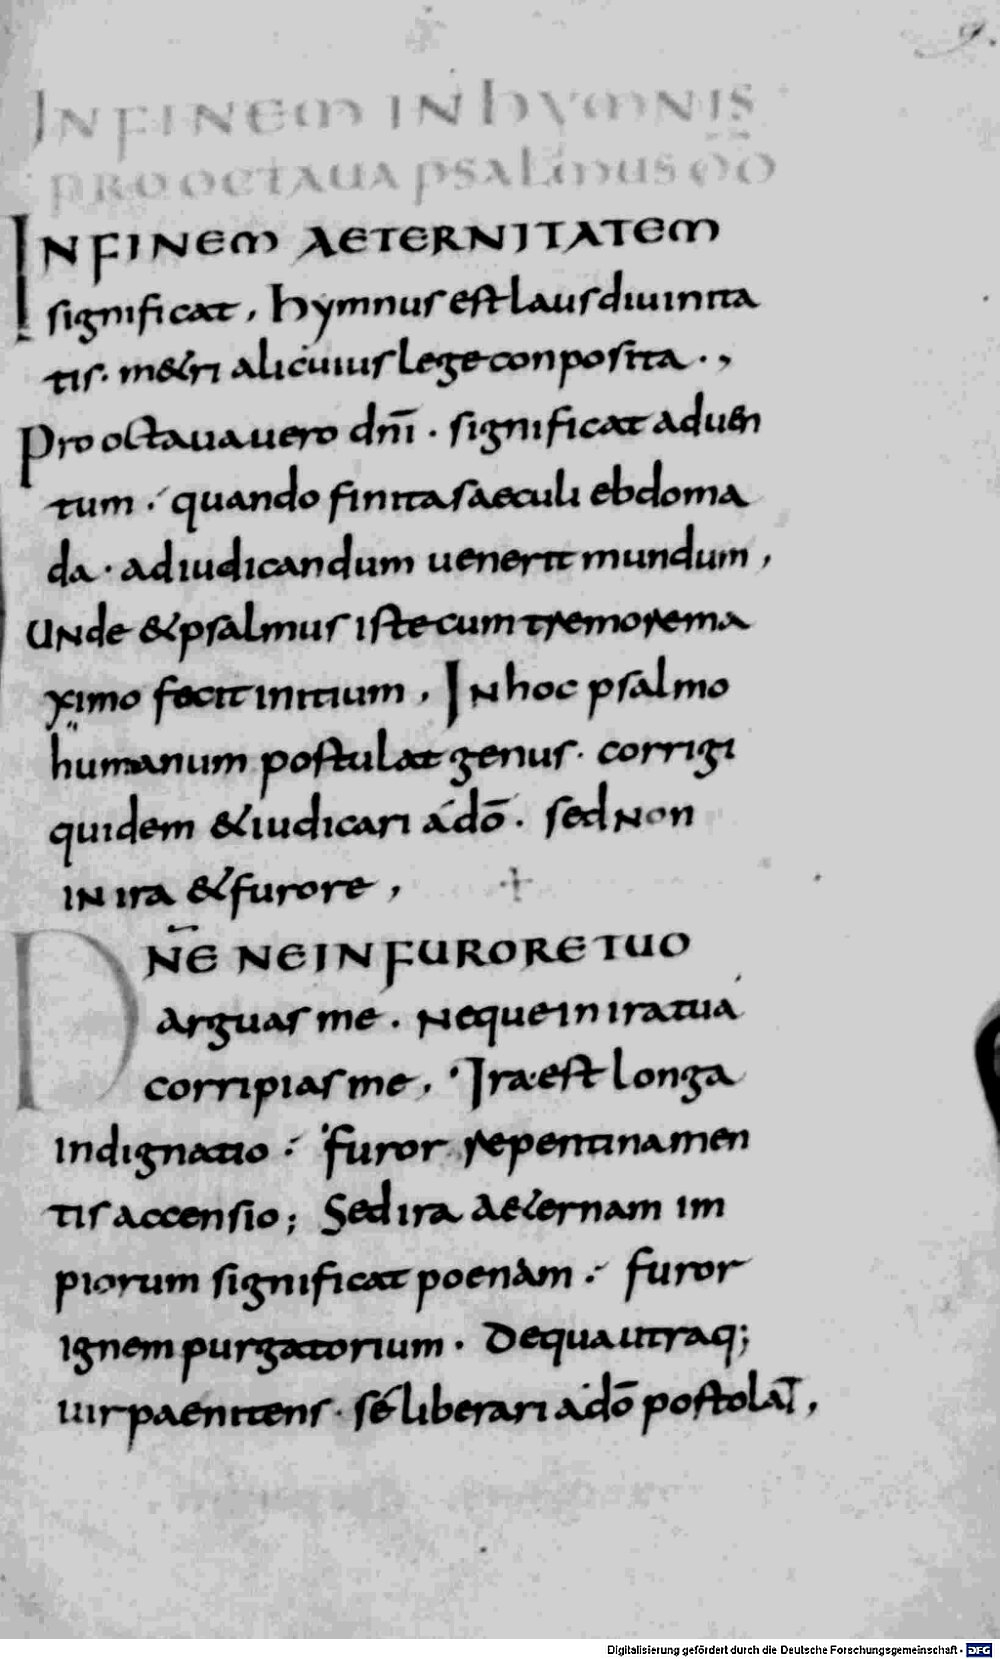 9.
IN FINEM IN hYMNIS
PRO OCTAUA PSALMUS D̅D̅
IN FINEM AETERNITATEM
significat, hymnus est laus diuinita
tis. m&ri alicuius lege conposita.,
Pro octaua uero dn̅i. significat aduen
tum. quando finita saeculi ebdoma
da. ad iudicandum uenerit mundum,
UNde & psalmus iste cum tremore ma
ximo fecit initium, IN hoc psalmo
humanum postulat genus. corrigi
quidem & iudicari a do̅. sed Non
IN ira & furore,
DN̅E NE IN FURORE TUO
arguas me. Neque in ira tua
corripias me, Ira est longa
indignatio. furor repentina men
tis accensio; Sed ira aeternam im
piorum significat poenam. furor
ignem purgatorium. De qua utraq;
uir paenitens. se liberari a do̅ postola̅t,
Digitalisierung gefördert durch die Deutsche Forschungsgemeinschaft - DFG